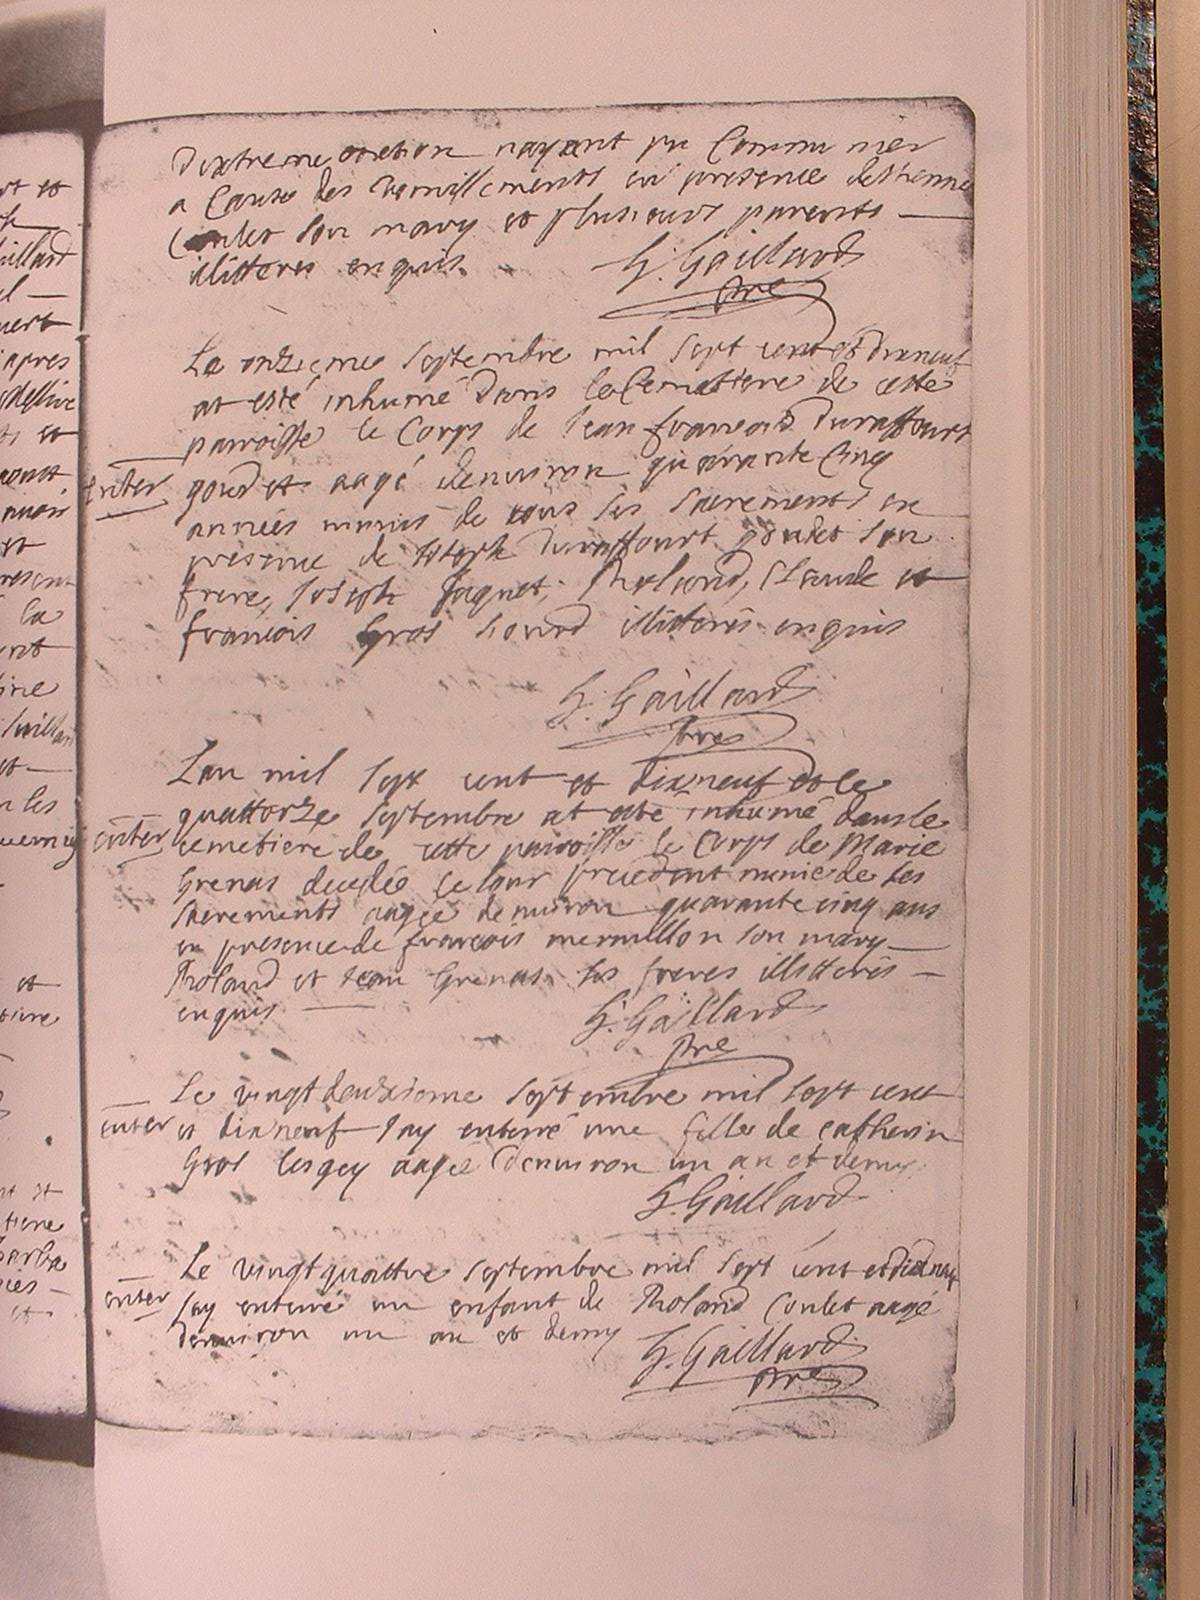 Dextreme onction nayant pu Commu nier
a Cause des Vomissements en presence destienne
Coulet son mary et plusieurs parents
illitteres enquis.
G. Gaillard
pre
Le onzieme septembre mil sept cent et dixneuf
at esté inhumé dans le Cemettiere de cette
parroisse le Corps de Jean francois Duraffourt
enter
godet aagé denviron quarante Cinq
années munis de tous ses sacrements en
presence de Joseph Duraffourt godet son
frere, Joseph Jaquet, Rolland, Claude et
francois Gros Liord illitterés enquis
G. Gaillard
pre
Lan mil sept cent et dixneuf et le
quattorze septembre at esté inhumé dans le
enter
cemetiere de cette parroisse le Corps de Marie
Grenas decedée le Jour precedent munie de ses
sacrements aagée denviron quarante cinq ans
en presence de francois mermillon son mary
Roland et Jean Grenas ses freres illitterés
enquis
G. Gaillard
pre
Le vingt deuxieme septembre mil sept cent
enter
et dixneuf Jay enterré une fille de catherin
Gros aagée denviron un an et demy
G. Gaillard
Le vingtquattre septembre mil sept cent et dixneuf
enter
Jay enterré un enfant de Roland Coulet aagé
denviron un an et demy
G. Gaillard
pre